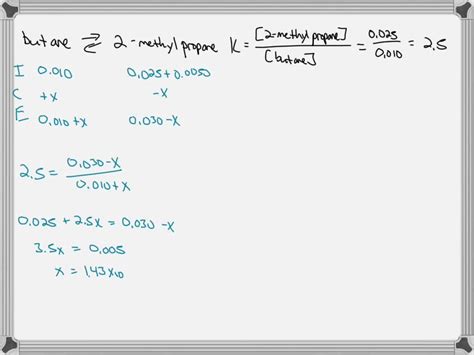 butane ⇌ 2-methylpropane K = [2-methylpropane] / [butane] = 0.025 / 0.010 = 2.5
I 0.010 0.025+0.0050
C +x -x
E 0.010+x 0.030-x
2.5 = 0.030-x / 0.010+x
0.025 + 2.5x = 0.030 -x
3.5x = 0.005
x = 1.43x10